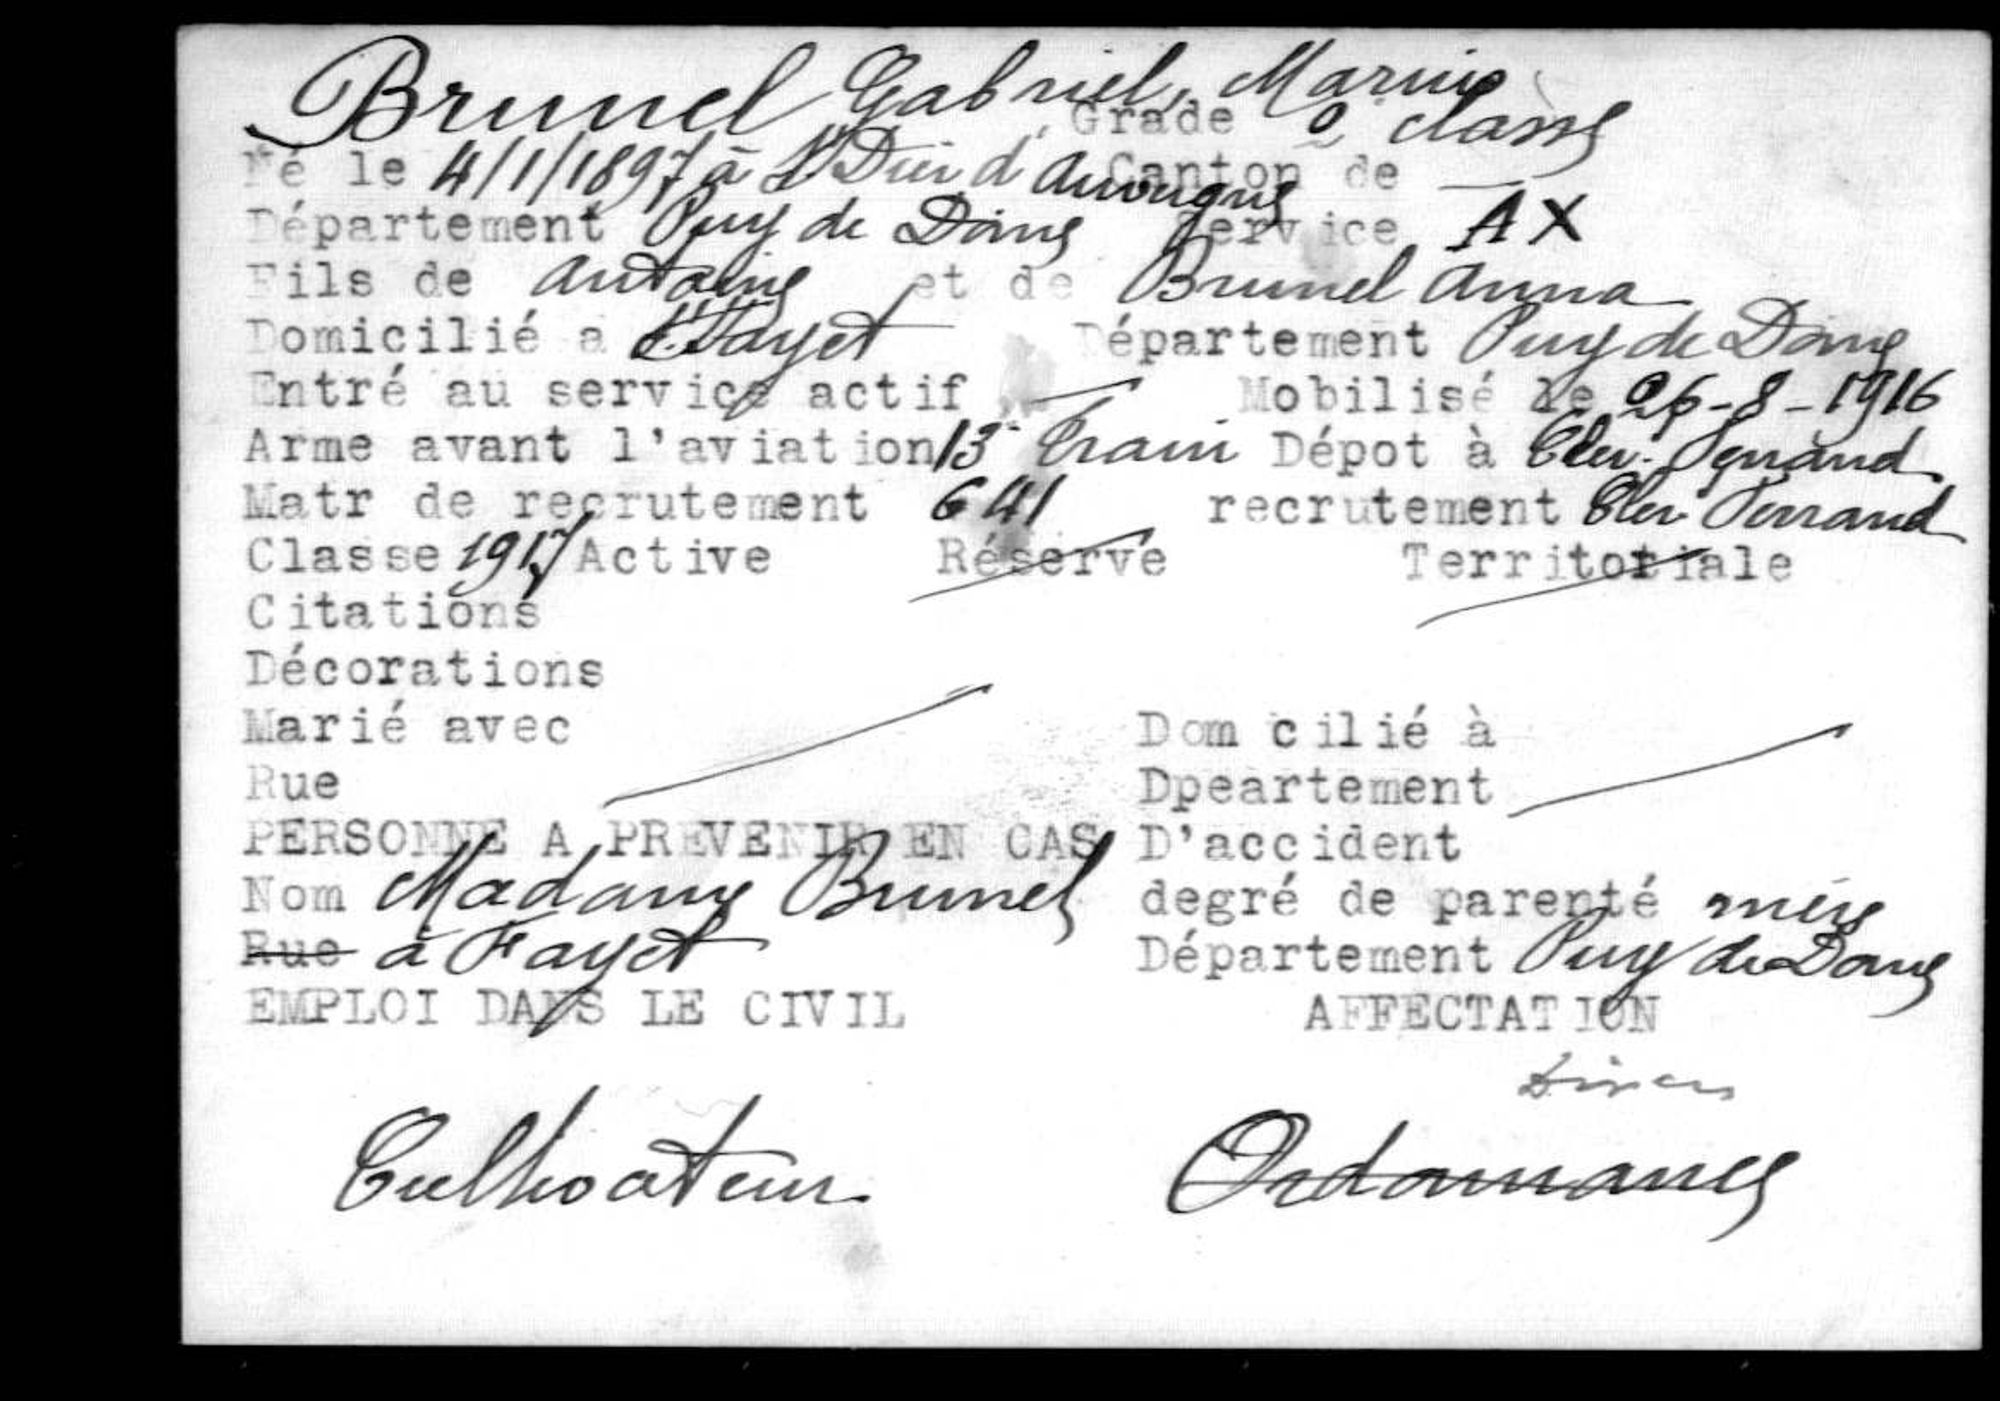 Brunel Gabriel, Marius
Grade 2e classe
Né le 4/1/1897 à St Dier d'Auvergne Canton de —
Département Puy de Dôme Service AX
Fils de Antoine et de Brunel Anna
Domicilié a Fayet Département Puy de Dôme
Entré au service actif — Mobilisé le 26-8-1916
Arme avant l'aviation 13e Train Dépot à Cler. Ferrand
Matr de recrutement 641 recrutement Cler Ferrand
Classe 1917 Active Réserve Territoriale
Citations
Décorations
Marié avec Dom cilié à
Rue Dpeartement
PERSONNE A PREVENIR EN CAS D'accident
Nom Madame Brunel degré de parenté mère
Rue à Fayet Département Puy de Dome
EMPLOI DANS LE CIVIL AFFECTATION
Divers
Cultivateur Ordonnance